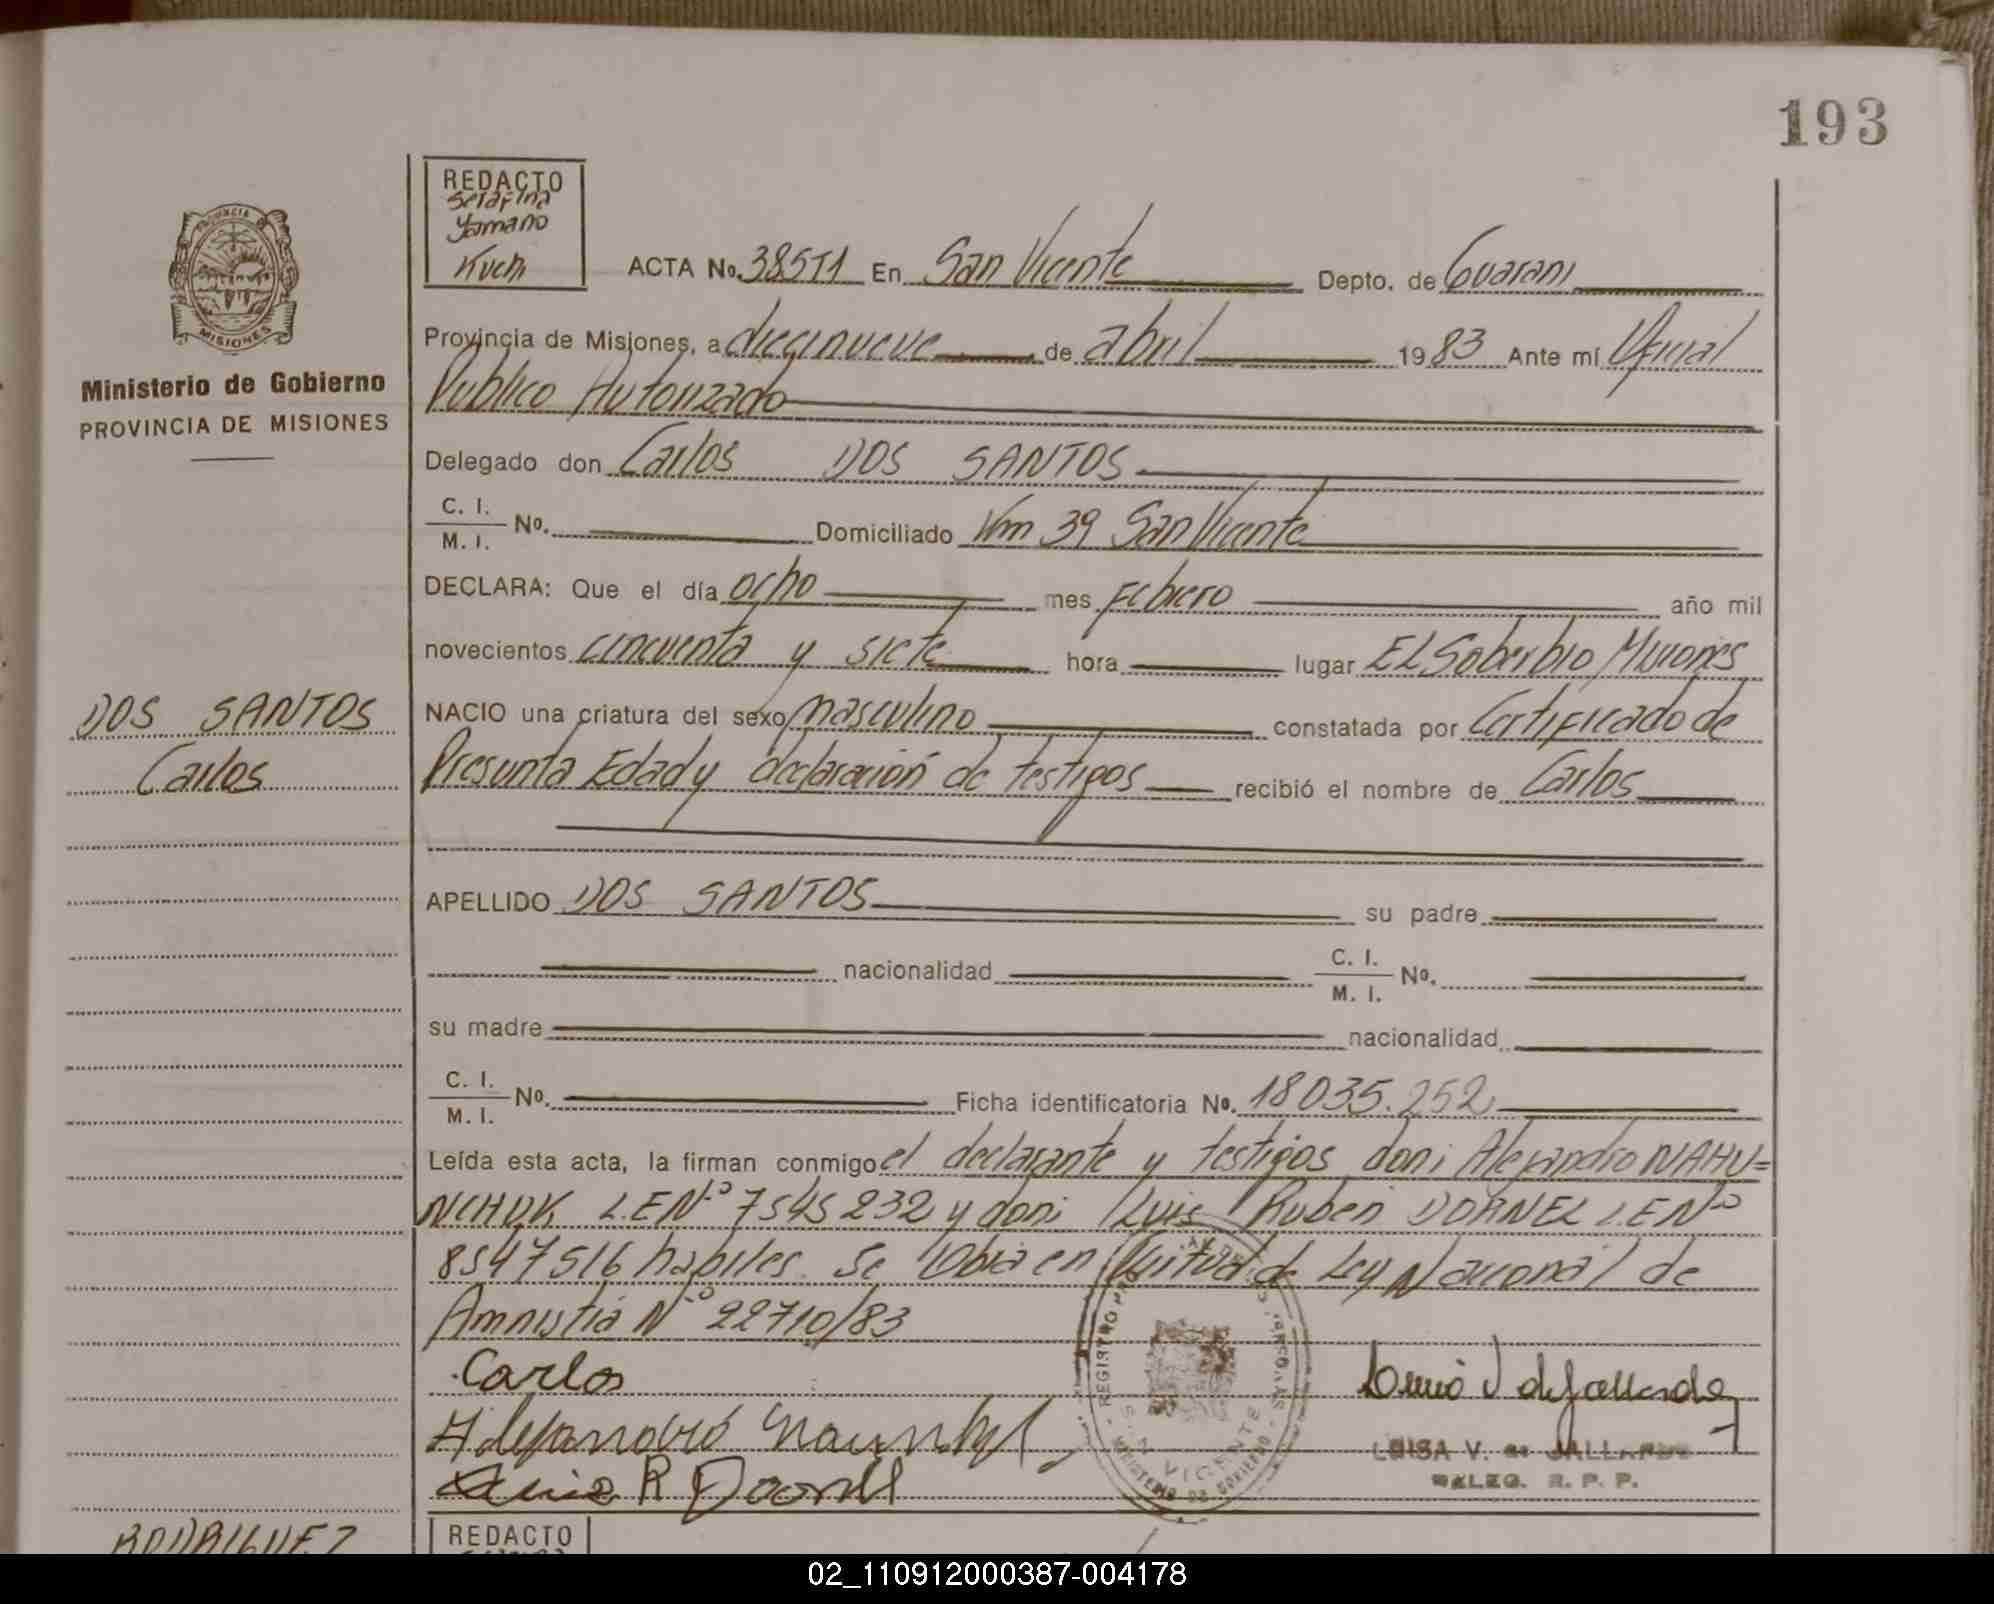 193
REDACTO
Serafina
Yamano
Kuch
ACTA No. 38511 En San Vicente Depto. de Guarani
PROVINCIA
MISIONES
Ministerio de Gobierno
PROVINCIA DE MISIONES
Provincia de Misiones, a diecinueve de abril 1983 Ante mí Oficial
Publico Autorizado
Delegado don Carlos DOS SANTOS
C. I.
M. I. No. Domiciliado Km 39 San Vicente
DECLARA: Que el día ocho mes Febrero año mil
novecientos cincuenta y siete hora lugar EL Soberbio Misiones
DOS SANTOS
Carlos
NACIO una criatura del sexo masculino constatada por Certificado de
Presunta Edad y declaración de testigos recibió el nombre de Carlos
APELLIDO DOS SANTOS su padre
nacionalidad C. I.
M. I. No.
su madre nacionalidad
C. I.
M. I. No. Ficha identificatoria No. 18035.252
Leída esta acta, la firman conmigo el declarante y testigos don: Alejandro NAHU=
NCHUK L.E Nº 7545232 y don: Luis Ruben DORNEL L.E Nº
8547516 habiles. Se labra en virtud de Ley Nacional de
Amnistia Nº 22710/83
Carlos
Luis R Dornel
REGISTRO PRO DE LAS PERSONAS
S. VICENTE
MINISTERIO DE GOBIERNO
LUISA V. de GALLARDO
DELEG. R. P. P.
RODRIGUEZ
REDACTO
02_110912000387-004178